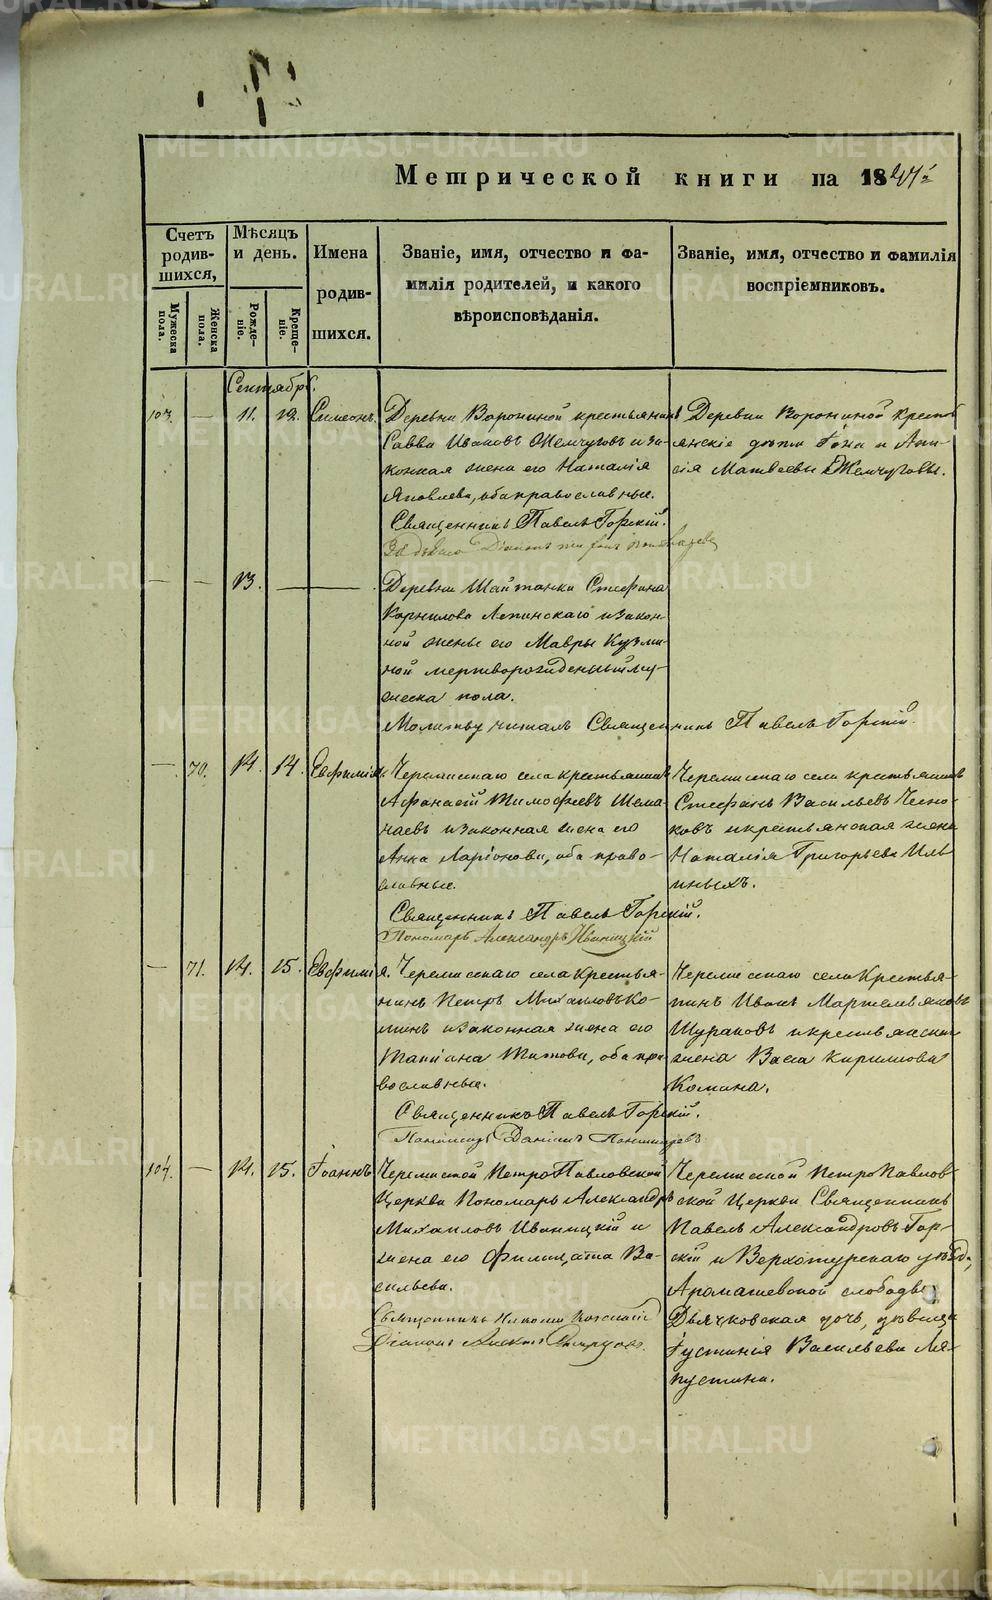 Метрической книги на 1847й
Счетъ родив-шихся,
Мужеска пола.
Женска пола.
Мѣсяцъ и день.
Рожде-ніе.
Креще-ніе.
Имена
родив-
шихся.
Званіе, имя, отчество и фа-
милія родителей, и какого
вѣроисповѣданія.
Званіе, имя, отчество и фамилія
воспріемниковъ.
Сентябрь.
103. — 11. 12. Симеонъ.
Деревни Ворониной крестьянинъ
Савва Ивановъ Жемчуговъ и за-
конная жена его Наталія
Яковлева, оба православные.
Священникъ Павелъ Горскій.
Деревни Ворониной кресть
янскіе дѣти
Матвеевы Жемчуговы.
— — 13. —
Деревни Шайтанки Стефана
Корнилова Лепинскаго и закон-
ной жены его Мавры Кузми-
ной мертворожденный му-
жеска пола.
Молитву читалъ Священникъ Павелъ Горскій.
— 70. 14. 14. Евфимія.
Черемисскаго села крестьянинъ
Афанасій Тимофеевъ
и законная жена его
Анна Ларіонова, оба право-
славные.
Священникъ Павелъ Горскій.
Пономарь Александръ Иваницкій
Черемисскаго села крестьянинъ
Стефанъ Васильевъ Чесно-
ковъ и крестьянская жена
Наталія Григорьева Иль
иныхъ.
— 71. 14. 15. Евфимія.
Черемисскаго села крестья-
нинъ Петръ Михайловъ Ко-
минъ и законная жена его
Татіана Титова, оба пра-
вославные.
Священникъ Павелъ Горскій.
Черемисскаго села крестья-
нинъ Иванъ
и крестьянская
жена Васса Кирилова
Комина.
104. — 14. 15. Іоаннъ
Черемисской Петропавловской
Церкви Пономарь Александръ
Михайловъ Иваницкій и
жена его Филицата Ва-
сильева.
Священникъ
Діаконъ
Черемисской Петропавлов-
ской Церкви Священникъ
Павелъ Александровъ Гор-
скій и Верхотурскаго уѣзда,
Арамашевской слободы
Дьячковская дочь, дѣвица
Іустинія Васильева Ля-
пустина.
METRIKI.GASO-URAL.RU